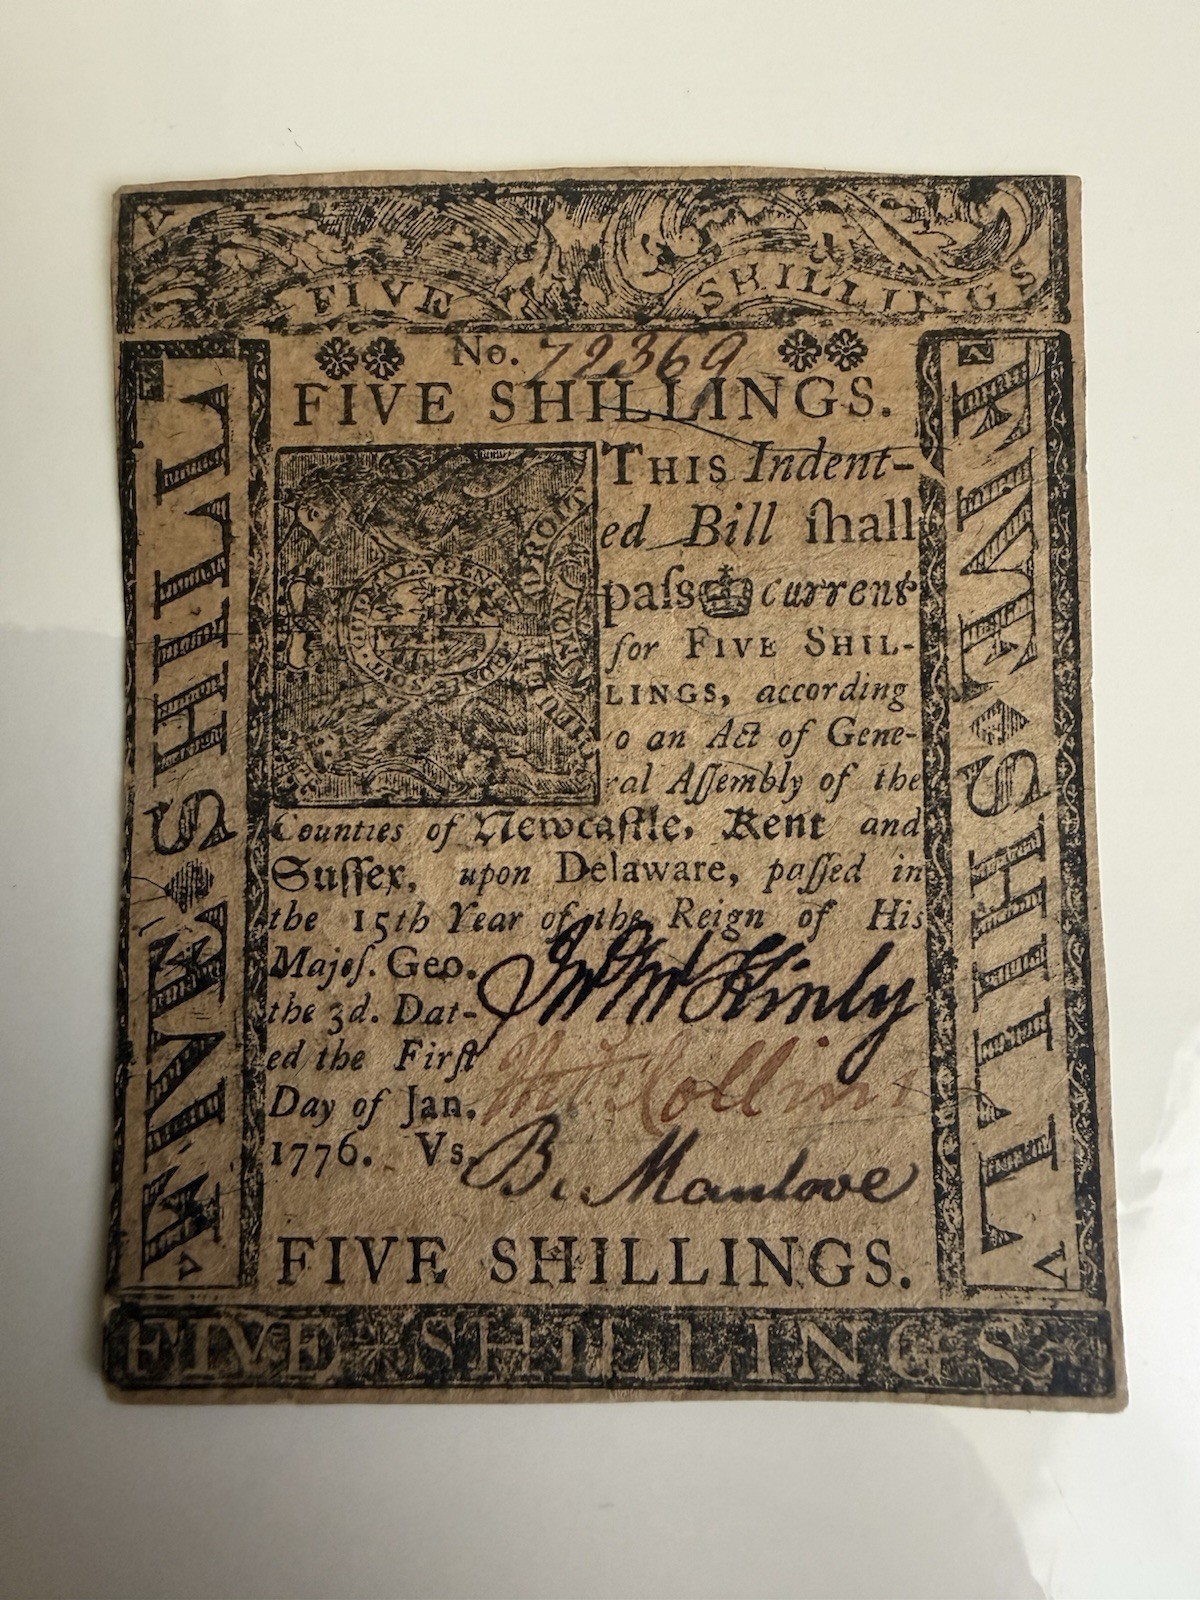 FIVE SHILLINGS
No. 72369
FIVE SHILLINGS.
THIS Indent-
ed Bill ſhall
paſs current
for FIVE SHIL-
LINGS, according
o an Act of Gene-
ral Aſſembly of the
Counties of Newcaſtle, Kent and
Suſſex, upon Delaware, paſſed in
the 15th Year of the Reign of His
Majeſ. Geo.
the 3d. Dat-
ed the Firſt
Day of Jan.
1776. Vs.
Jno McKinly
Collins
B. Manlove
FIVE SHILLINGS.
FIVE SHILLINGS
FIVE SHILL
FIVE SHILL
DROIT
ET MON
DIEU